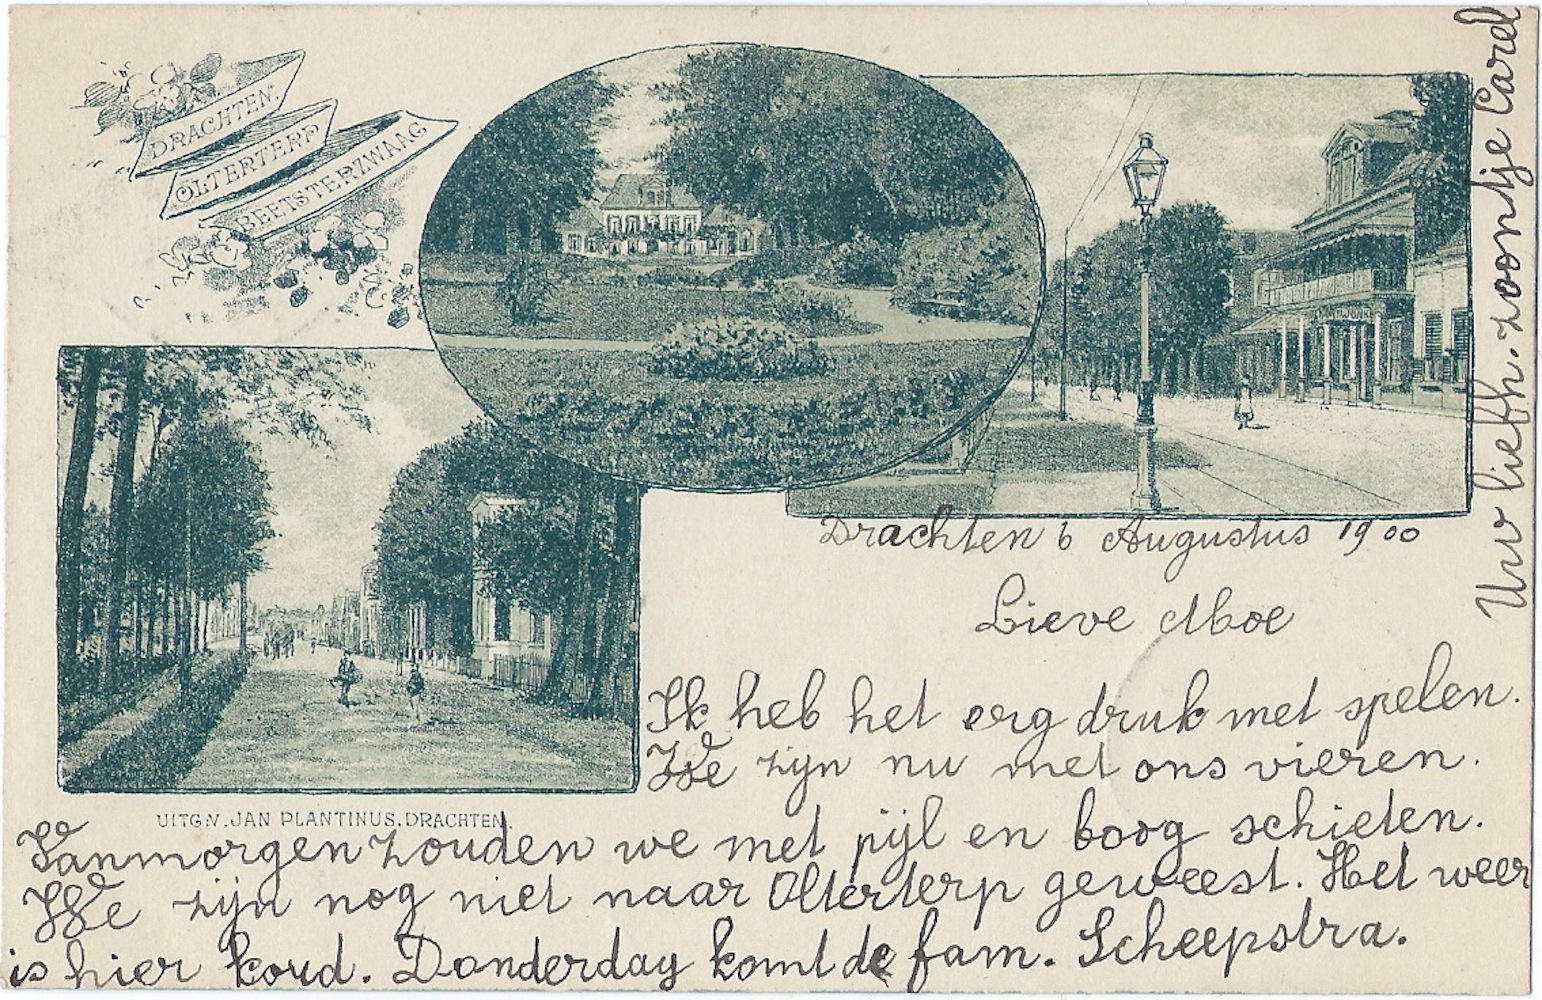 DRACHTEN.
OLTERTERP
BEETSTERZWAAG
UITGN. JAN PLANTINUS, DRACHTEN
Drachten 6 Augustus 1900
Lieve Moe
Ik heb het erg druk met spelen.
We zijn nu met ons vieren.
Vanmorgen zouden we met pijl en boog schieten.
We zijn nog niet naar Olterterp geweest. Het weer
is hier koud. Donderdag komt de fam. Scheepstra.
Uw liefh. zoontje Carel